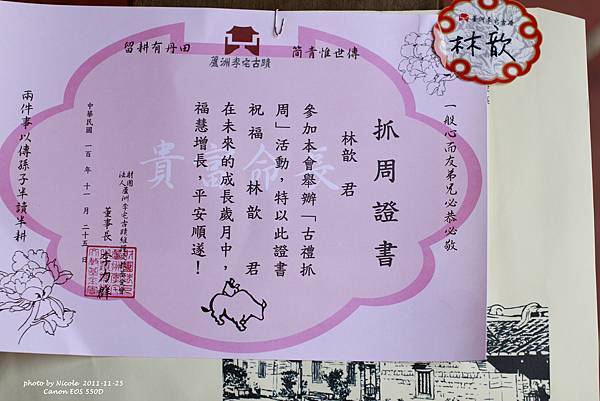 留耕有丹田
蘆洲李宅古蹟
簡青惟世傳
林歆
一般心而友弟兄必恭必敬
抓周證書
林歆 君
參加本會舉辦「古禮抓
周」活動，特以此證書
祝福 林歆 君
在未來的成長歲月中，
福慧增長，平安順遂！
貴富命長
財團
法人蘆洲李宅古蹟
董事長 李力群
中華民國 一百 年 十一 月 二十五 日
兩件事以傳孫子半讀半耕
photo by Nicole 2011-11-25
Canon EOS 550D